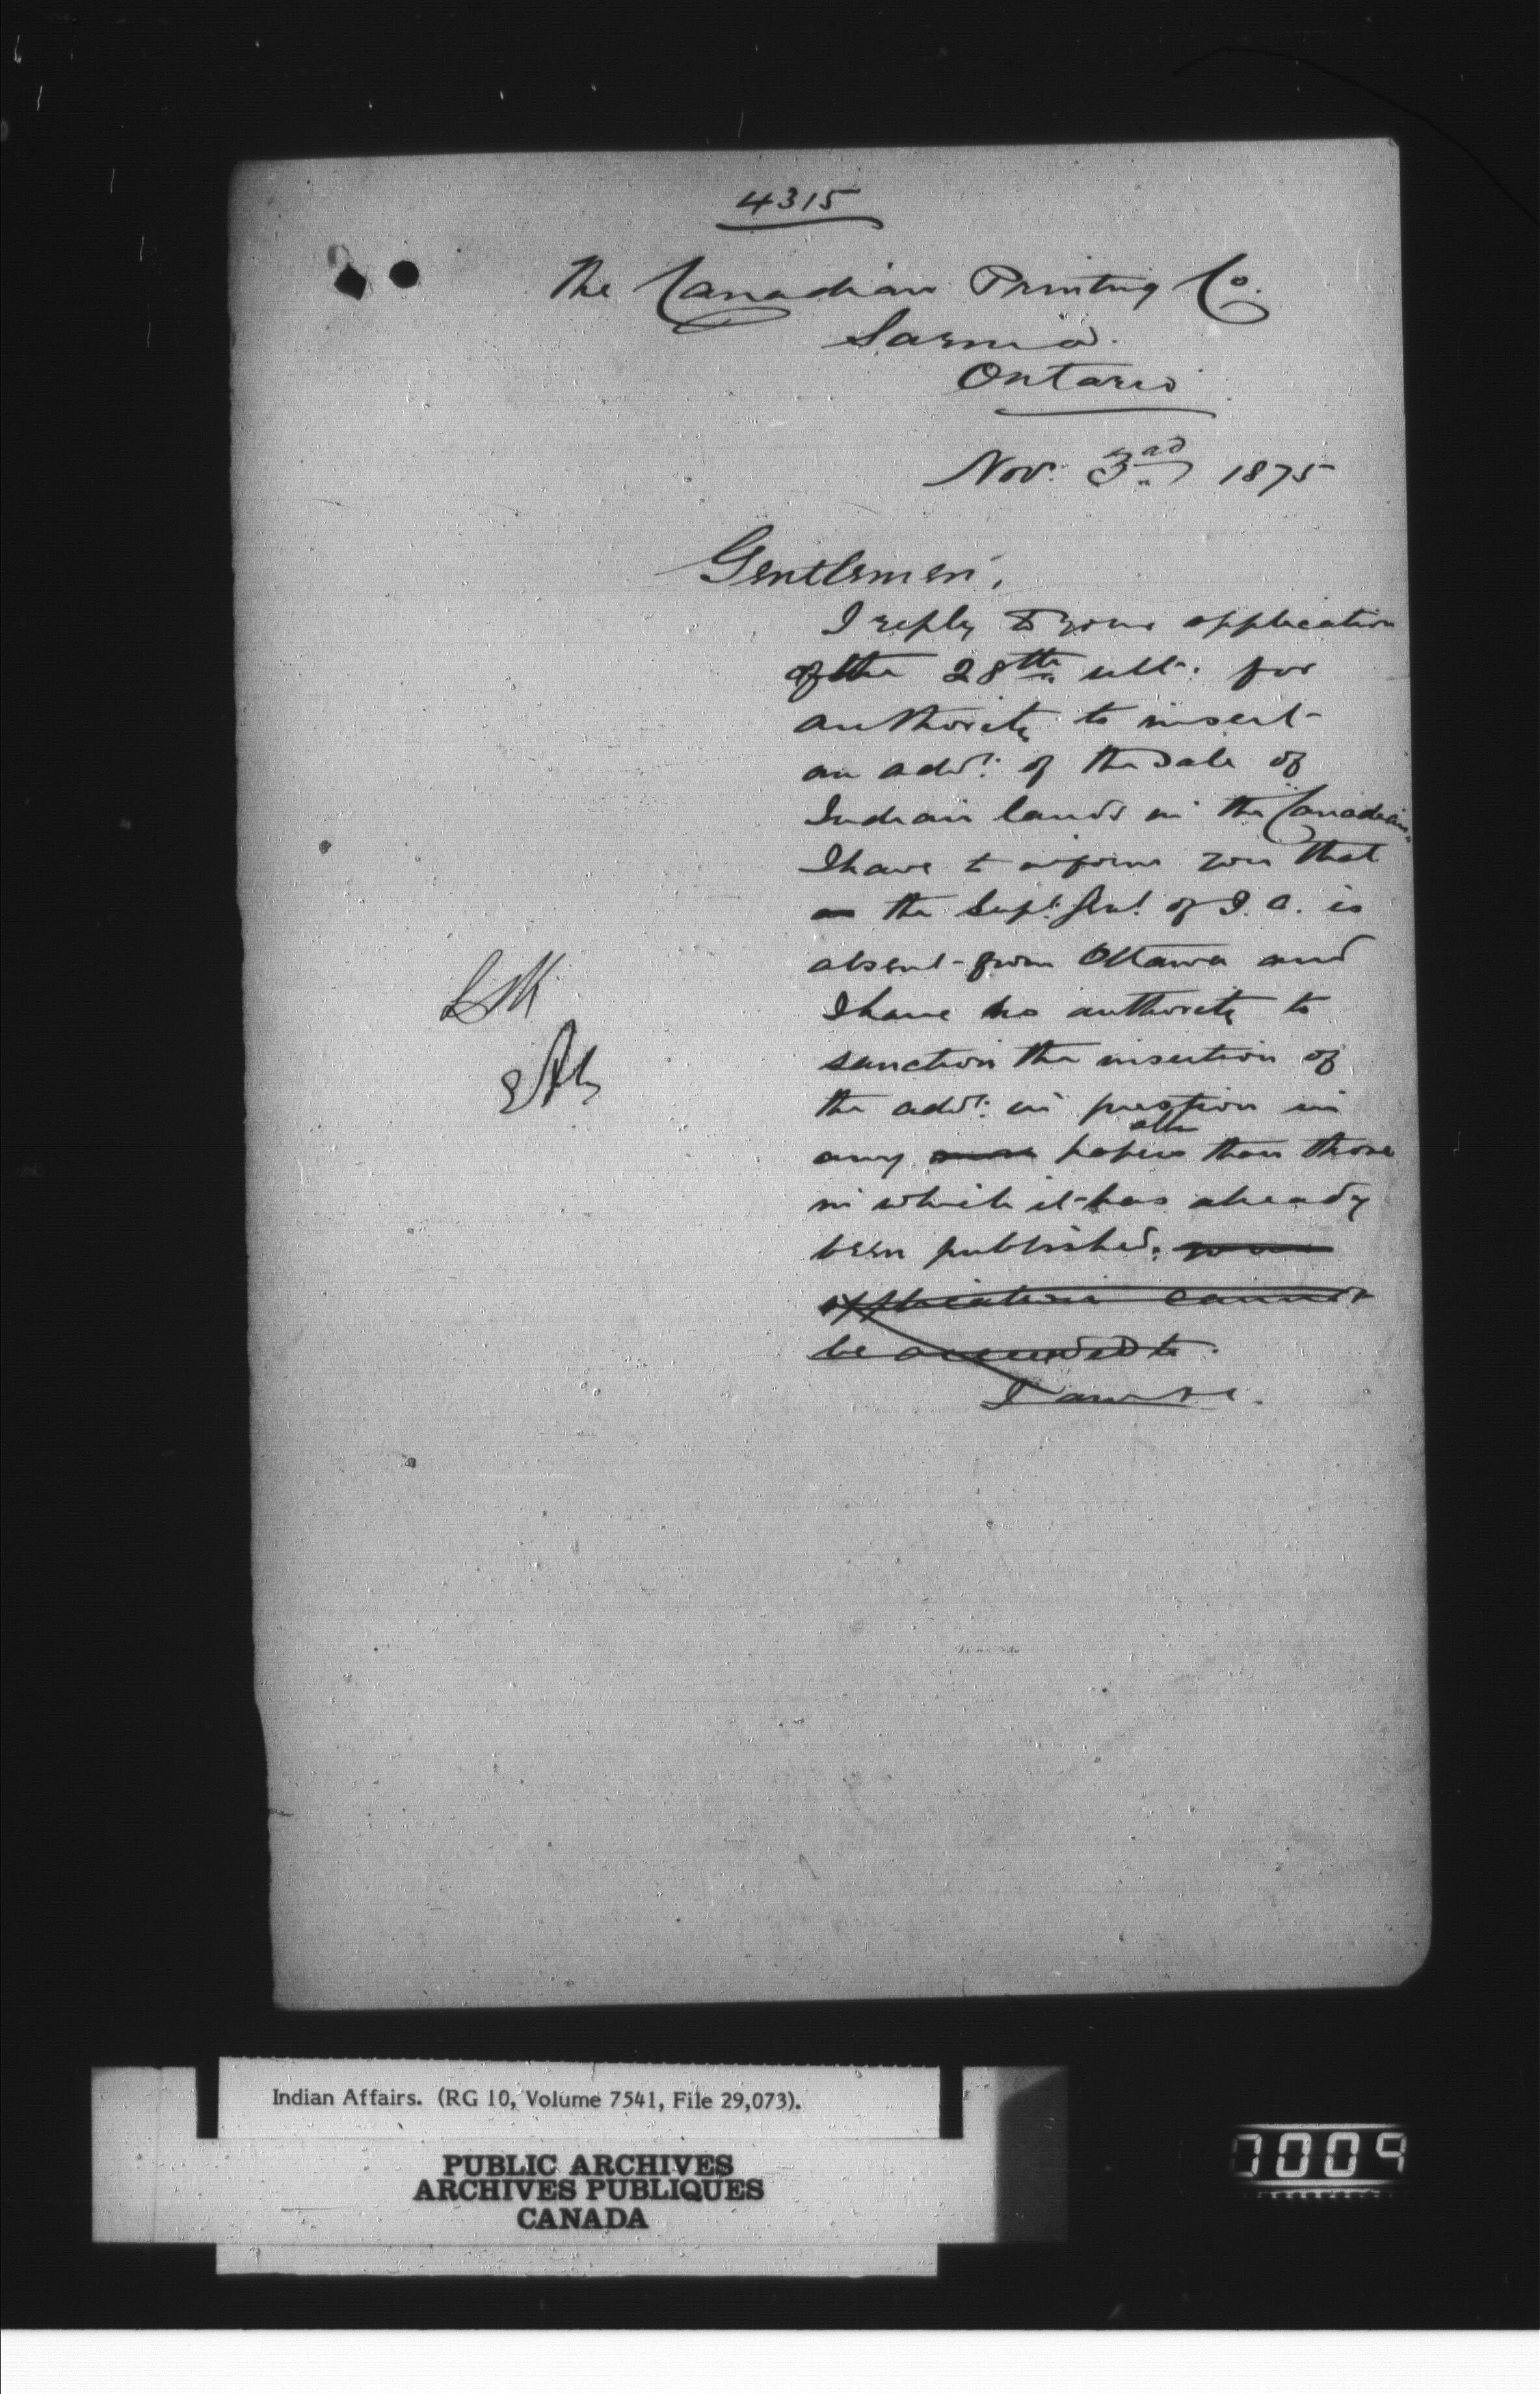 4315
The Canadian Printing Co.
Sarnia.
Ontario
Nov. 3rd 1875
Gentlemen,
I reply to your application
of the 28th ult. for
authority to insert
an advt. of the sale of
Indian lands in the Canadian
I have to inform you that
as the Supt. Genl. of I. A. is
absent from Ottawa and
I have no authority to
sanction the insertion of
the advt. in question in
other
any more papers than those
in which it has already
been published. your
application cannot
be acceded to.
I am &c.
Indian Affairs. (RG 10, Volume 7541, File 29,073).
PUBLIC ARCHIVES
ARCHIVES PUBLIQUES
CANADA
0009